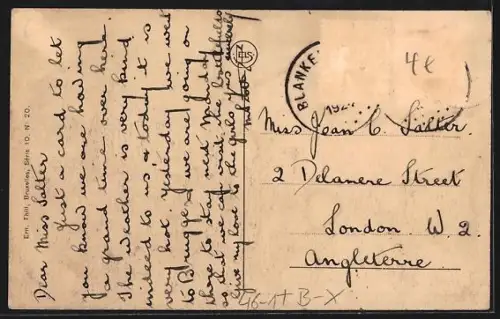 Dear Miss Salter
Just a card to let
you know we are having
a grand time over here.
The weather is very kind
indeed to us & today it is
very hot. Yesterday we went
to Bruges & we are going on
there to stay next Monday
so that we can visit the
Give my love to the girls. Yrs sincerely
Ern. Thill, Bruxelles, Série 10. N° 20.
BLANKE
192
4 €
Miss Jean C. Salter.
2 Delamere Street
London W. 2.
Angleterre
46-1+ B-X